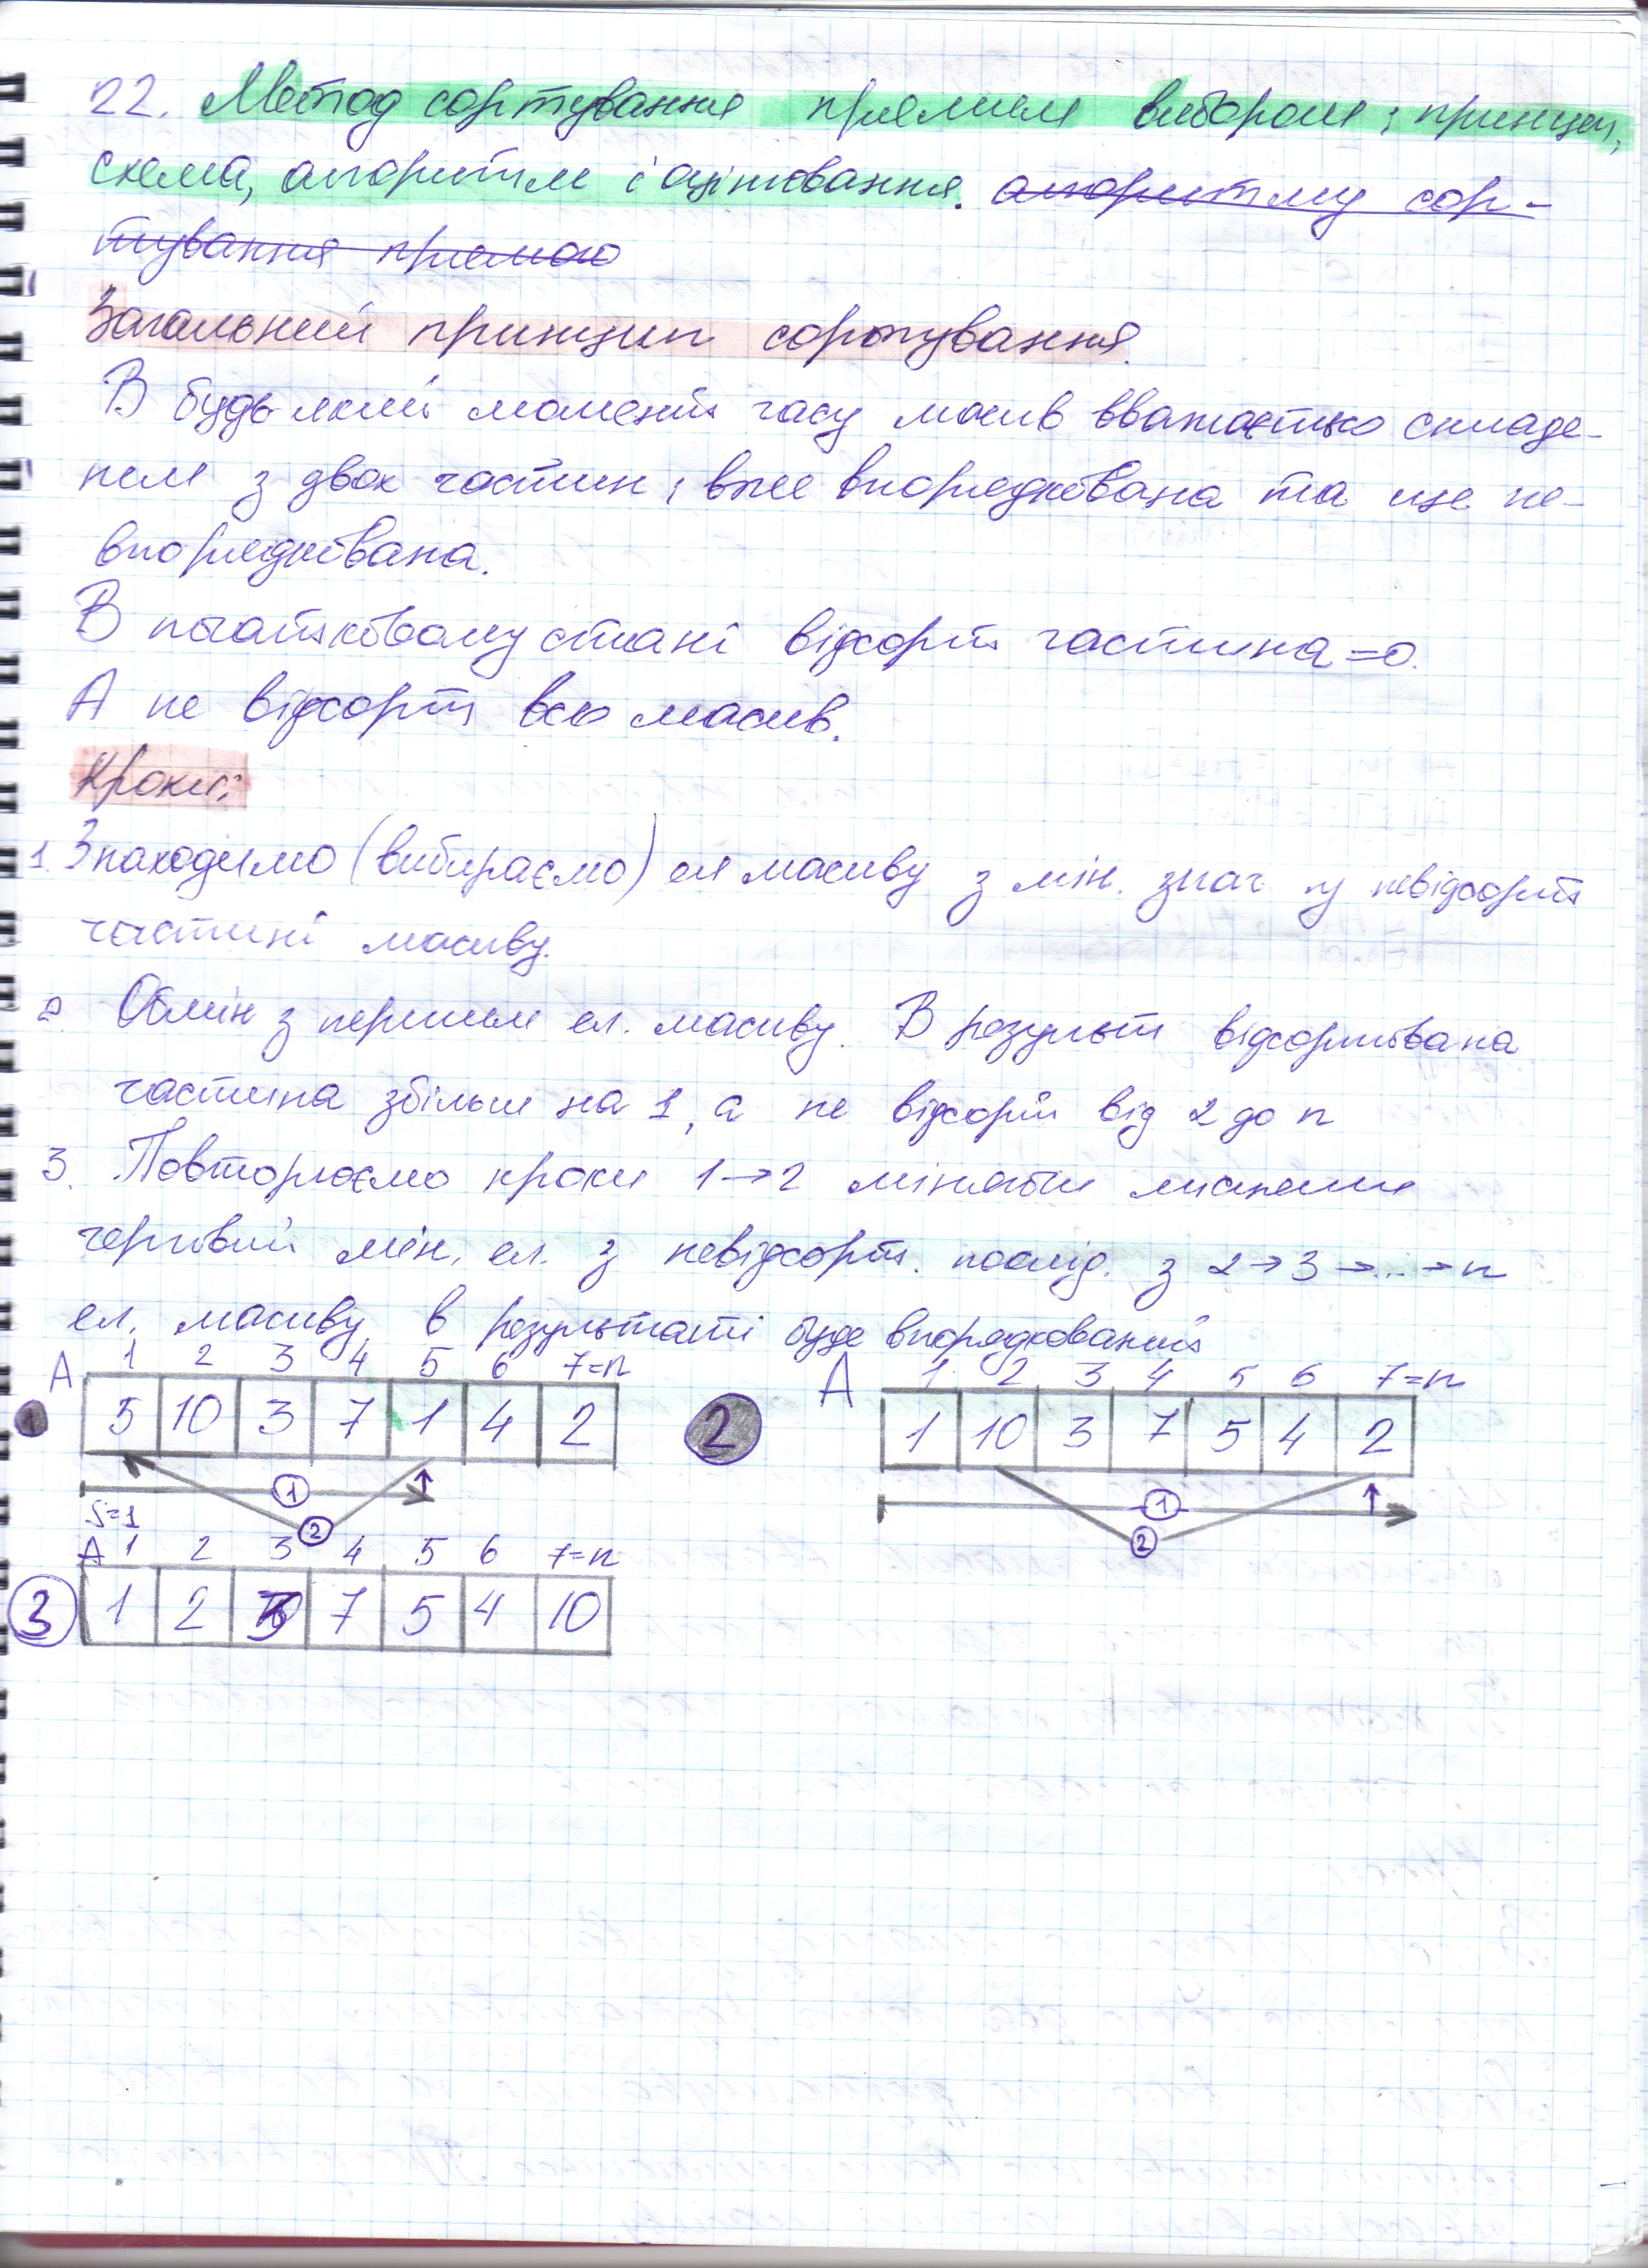 22. Метод сортування прямим вибором; принцип,
схема, алгоритм і оцінювання. алгоритму сор-
тування прямою
Загальний принцип сортування.
В будь який момент часу масив вважається складе-
ним з двох частин; вже впорядкована та ще не-
впорядкована.
В початковому стані відсорт частина =0.
А не відсорт всю масив.
Кроки:
1. Знаходимо (вибираємо) ел масиву з мін. знач у невідсорт
частині масиву.
2. Обмін з першим ел. масиву. В результ відсортована
частина збільш на 1, а не відсорт від 2 до n
3. Повторюємо кроки 1→2 міняючи
черговий мін. ел. з невідсорт. послід. з 2→3→...→n
ел. масиву, в результаті буде впорядкований
A 1 2 3 4 5 6 7=n
1 5 10 3 7 1 4 2
1
2
S=1
A 1 2 3 4 5 6 7=n
2 1 10 3 7 5 4 2
1
2
A 1 2 3 4 5 6 7=n
3 1 2 3 7 5 4 10